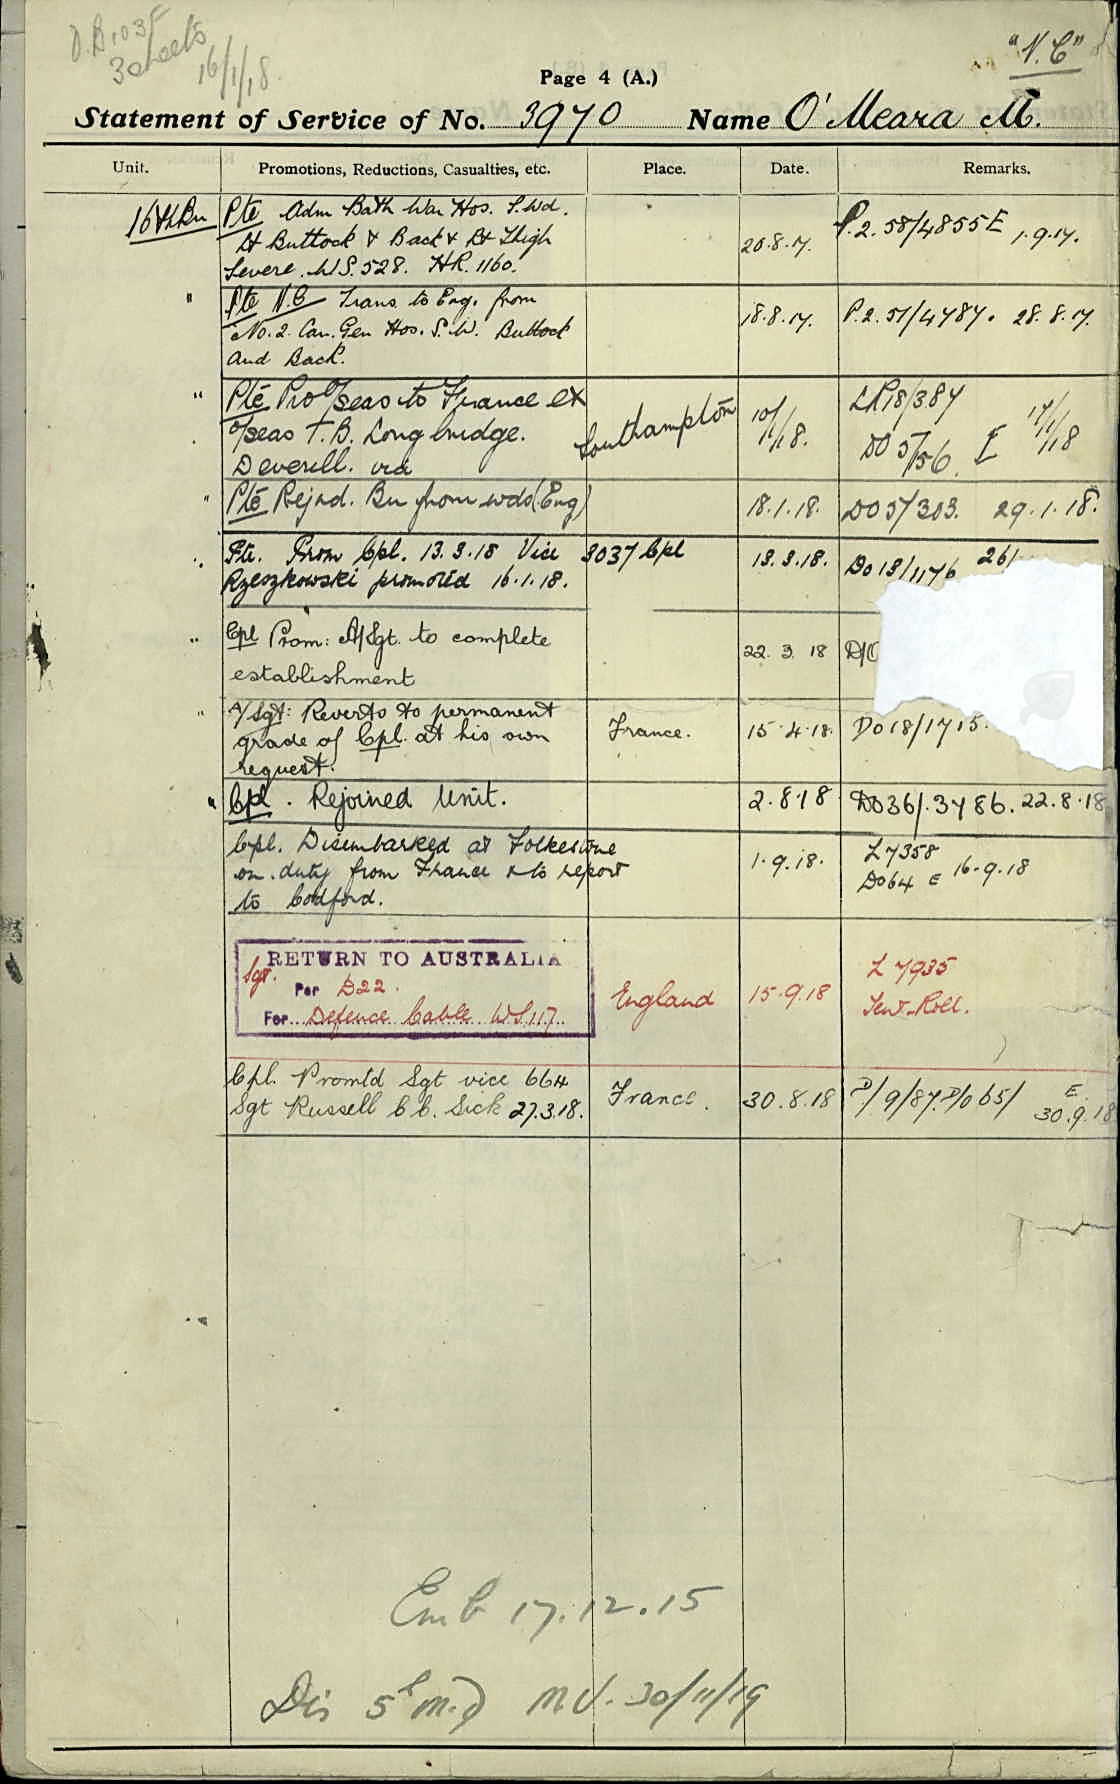 D.B. 1035
3 sheets
16/1/18
"V.C"
Page 4 (A.)
Statement of Service of No. 3970 Name O'Meara M.
Unit. Promotions, Reductions, Casualties, etc. Place. Date. Remarks.
16th Bn Pte Adm Bath War Hos. S. Wd. P.2.58/4855 E 1.9.17.
Buttock & Back & Rt Thigh 20.8.17.
Severe. W.S. 528. HR. 1160.
" Pte V.C Trans to Eng. from 18.8.17. P.2.51/4787. 28.8.17.
No. 2. Can. Gen Hos. S.W. Buttock
and Back.
" Pte Pro O/seas to France ex Southampton 10/1/18. LR18/387 17/1/18
O/seas T.B. Longbridge. DO 5/56. E
Deverill. via
" Pte Rejnd. Bn from wds (Eng) 18.1.18. DO 5/303. 29.1.18.
" Pte. Prom Cpl. 13.3.18 Vice 3037 Cpl 13.3.18. Do 13/1176 26/
Rzeszkowski promoted 16.1.18.
" Cpl Prom: A/Sgt. to complete 22.3.18 D/O
establishment
" A/Sgt: Reverts to permanent
grade of Cpl. at his own France. 15.4.18. Do 18/1715.
request.
" Cpl. Rejoined Unit. 2.8.18 DO36/.3786. 22.8.18
Cpl. Disembarked at Folkestone L 7358
on duty from France & to report 1.9.18. Do64 E 16.9.18
to Codford.
RETURN TO AUSTRALIA
Sgt. Per D22. England 15.9.18 L 7935
For Defence Cable W.S.117. Roll.
Cpl. Promtd Sgt vice 664
Sgt Russell C C. Sick 27.3.18. France. 30.8.18 D/9/87. D/O 65/ E 30.9.18
Emb 17.12.15
Dis 5th M.D M.U. 30/11/19